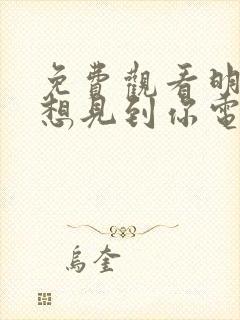 免費觀看明
想見到你電
烏奎